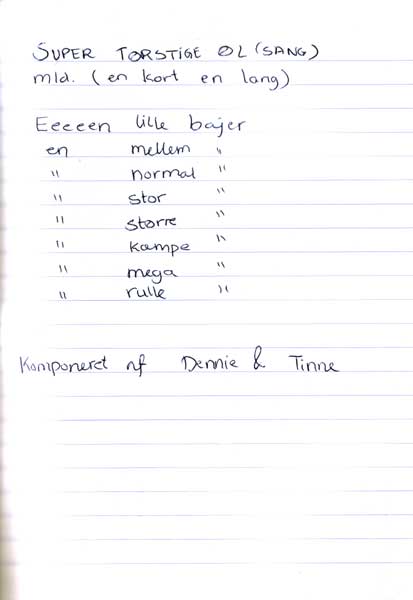 SUPER TØRSTIGE ØL (SANG)
mld. (en kort en lang)
Eeeeen lille bajer
en mellem "
" normal "
" stor "
" større "
" kæmpe "
" mega "
" rulle "
Komponeret af Dennie & Tinne